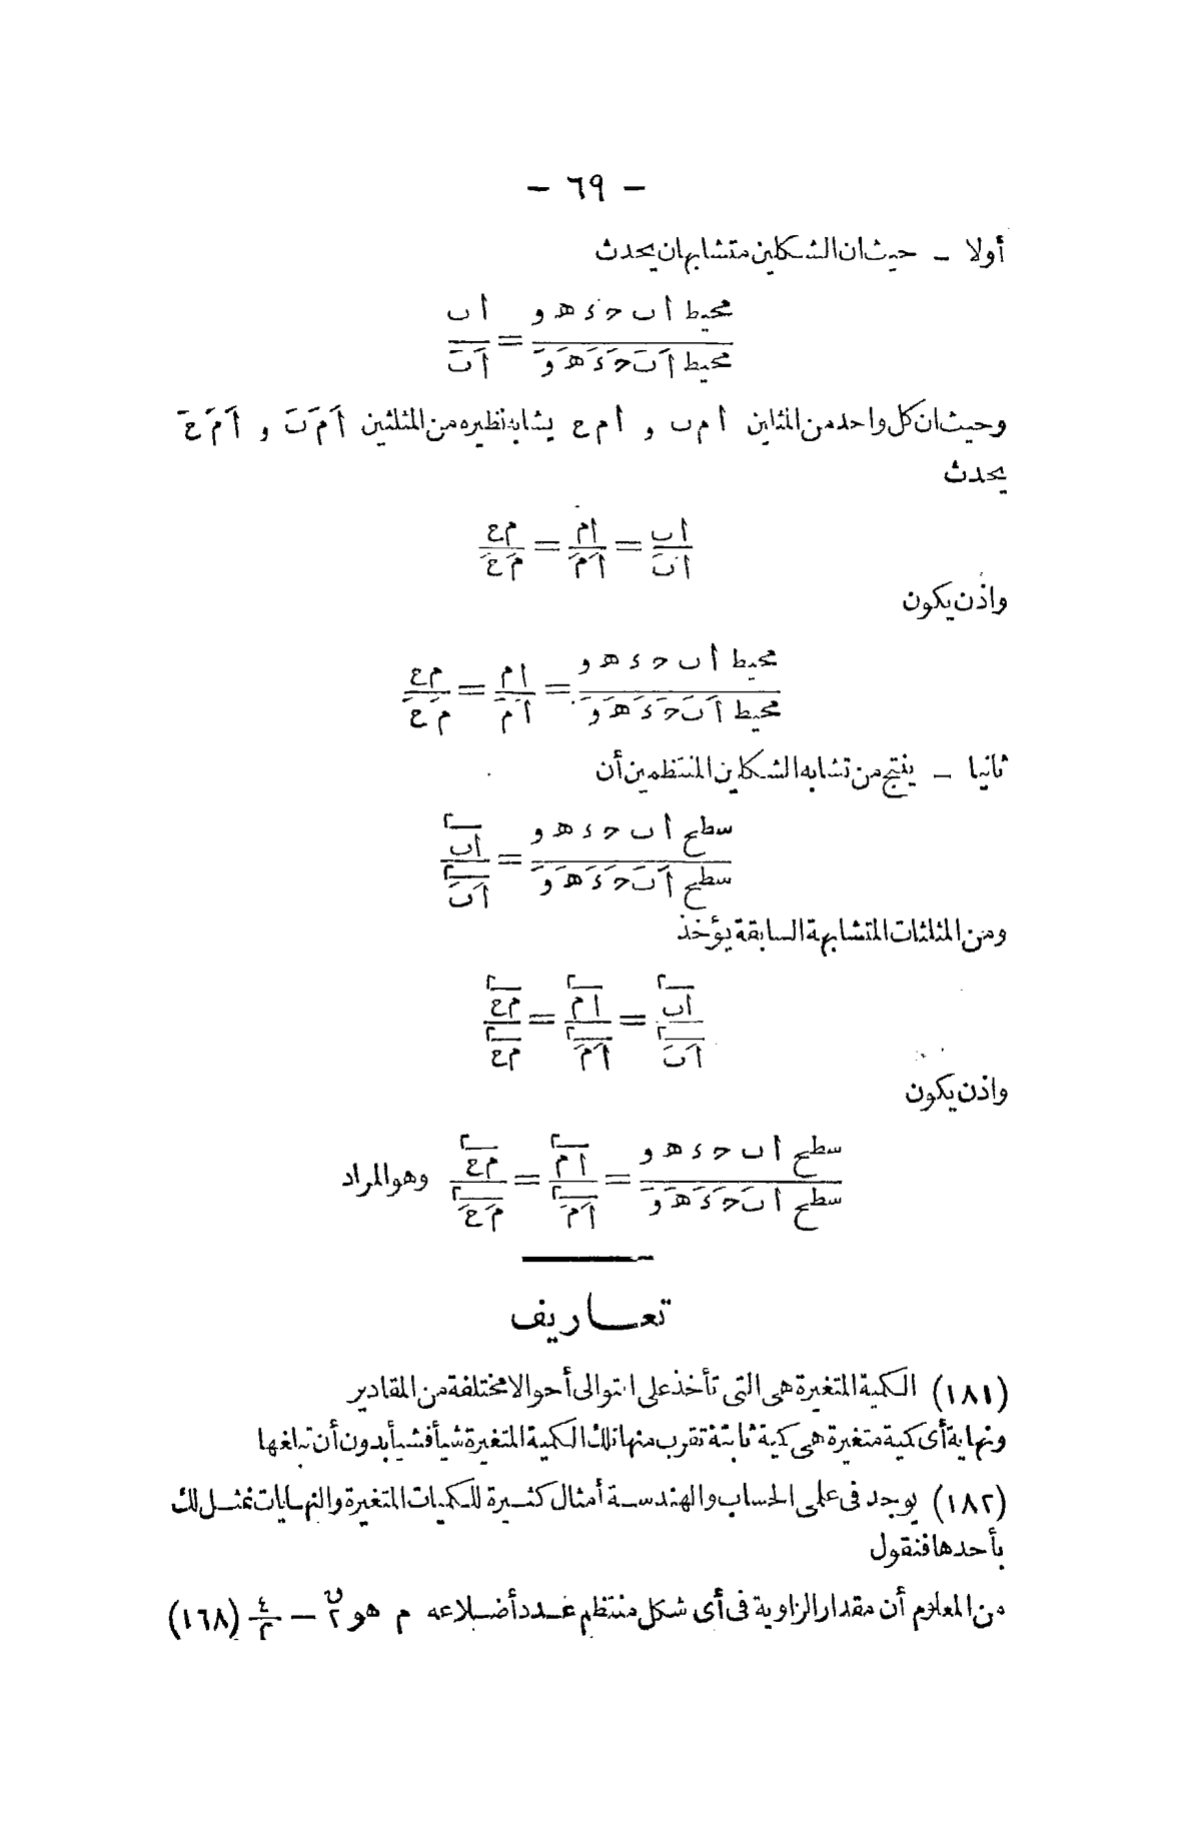 - ٦٩ -
أولا - حيث ان الشكلين متشابهان يحدث
محيط ا ب ح د ه و / محيط اَ بَ حَ دَ هَ وَ = ا ب / اَ بَ
وحيث ان كل واحد من المثلثين ا م ب و ا م ع يشابه نظيره من المثلثين اَ مَ بَ و اَ مَ عَ
يحدث
ا ب / اَ بَ = ا م / اَ مَ = م ع / مَ عَ
واذن يكون
محيط ا ب ح د ه و / محيط اَ بَ حَ دَ هَ وَ = ا م / اَ مَ = م ع / مَ عَ
ثانيا - ينتج من تشابه الشكلين المنتظمين أن
سطح ا ب ح د ه و / سطح اَ بَ حَ دَ هَ وَ = ا ب٢ / اَ بَ٢
ومن المثلثات المتشابهة السابقة يؤخذ
ا ب٢ / اَ بَ٢ = ا م٢ / اَ مَ٢ = م ع٢ / م ع٢
واذن يكون
سطح ا ب ح د ه و / سطح ا بَ حَ دَ هَ وَ = ا م٢ / اَ مَ٢ = م ع٢ / مَ عَ٢ وهو المراد
تعاريف
(١٨١) الكمية المتغيرة هى التى تأخذ على التوالى أحوالا مختلفة من المقادير
ونهاية أى كمية متغيرة هى كمية ثابتة تقرب منها تلك الكمية المتغيرة شيأ فشيأ بدون أن تبلغها
(١٨٢) يوجد فى علمى الحساب والهندسة أمثال كثيرة للكميات المتغيرة والنهايات نمثل لك
بأحدها فنقول
من المعلوم أن مقدار الزاوية فى أى شكل منتظم عدد أضلاعه م هو ٢ق - ٤/م (١٦٨)